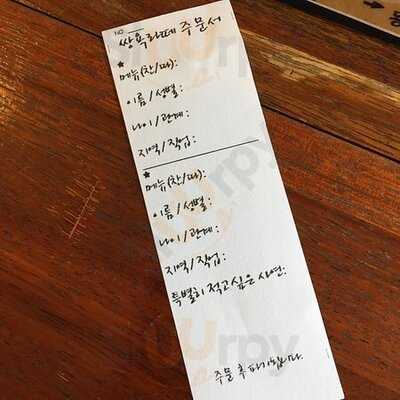 NO.
쌍욕라떼 주문서
★
메뉴(찬/따):
이름/성별:
나이/관계:
지역/직업:
★
메뉴(찬/따):
이름/성별:
나이/관계:
지역/직업:
특별히 적고싶은 사연:
주문 후 파기합니다.
wurpy